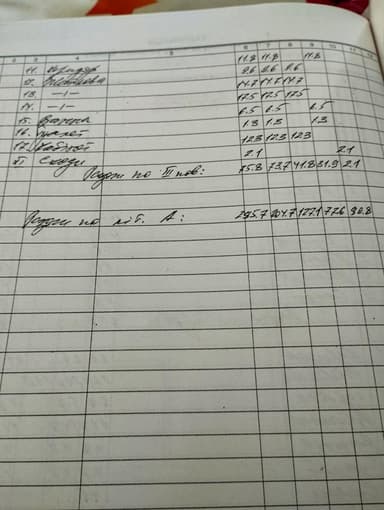 3 4 5 6 7 8 9 10 11 12
11. коридор 11.8 11.8 11.8
12. 9.6 9.6 9.6
13. —ı— 14.7 14.7 14.7
14. —ı— 12.5 12.5 12.5
15. Ванна 6.5 6.5 6.5
16. туалет 1.3 1.3 1.3
17. Кабінет 12.3 12.3 12.3
Сходи 2.1 2.1
Разом по III пов: 75.8 73.7 41.8 31.9 2.1
Разом по літ. А: 295.7 204.7 127.1 77.6 90.8